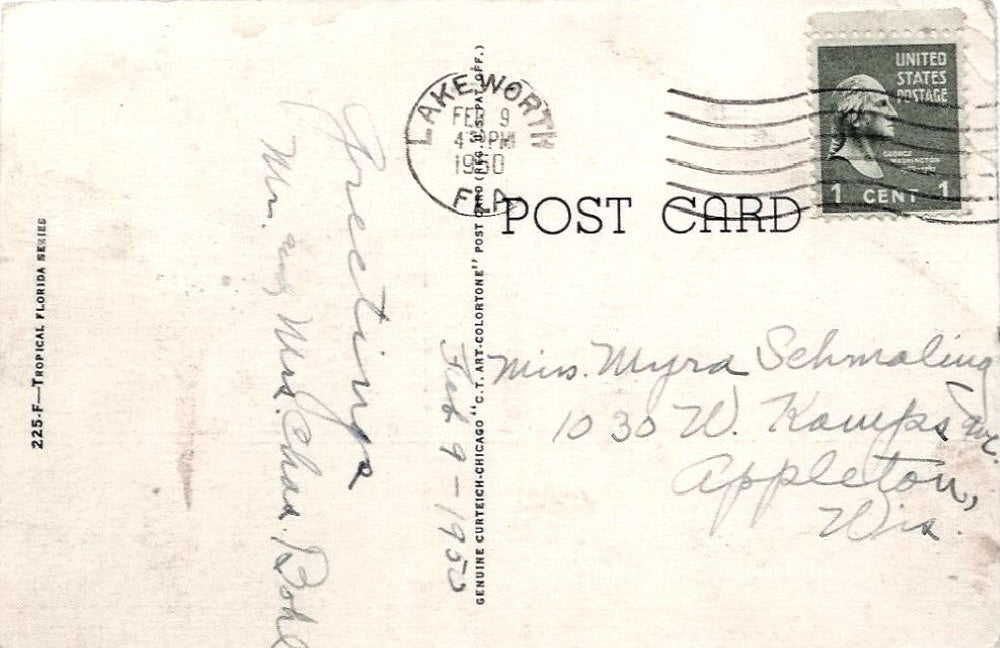 225-F—TROPICAL FLORIDA SERIES
Greetings
Mr. and Mrs. Chas. Bohl
Feb 9 - 1950
GENUINE CURTEICH-CHICAGO "C.T. ART-COLORTONE" POST CARD (REG. U.S. PAT. OFF.)
LAKE WORTH
FEB 9
PM
1950
FLA
POST CARD
UNITED
STATES
POSTAGE
GEORGE
WASHINGTON
1 CENT 1
Miss. Myra Schmaling
1030 W. Kamps Ave.
Appleton,
Wis.